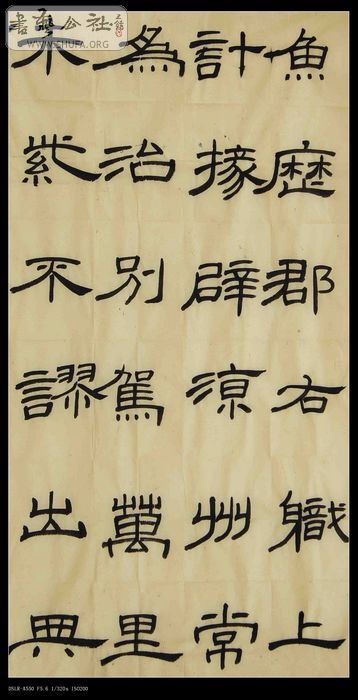 魚歷郡右職上
計掾辟涼州常
為治別駕萬里
朱紫不謬出典
書法公社
WWW.SHUFA.ORG
DSLR-A550 F5.6 1/320s ISO200